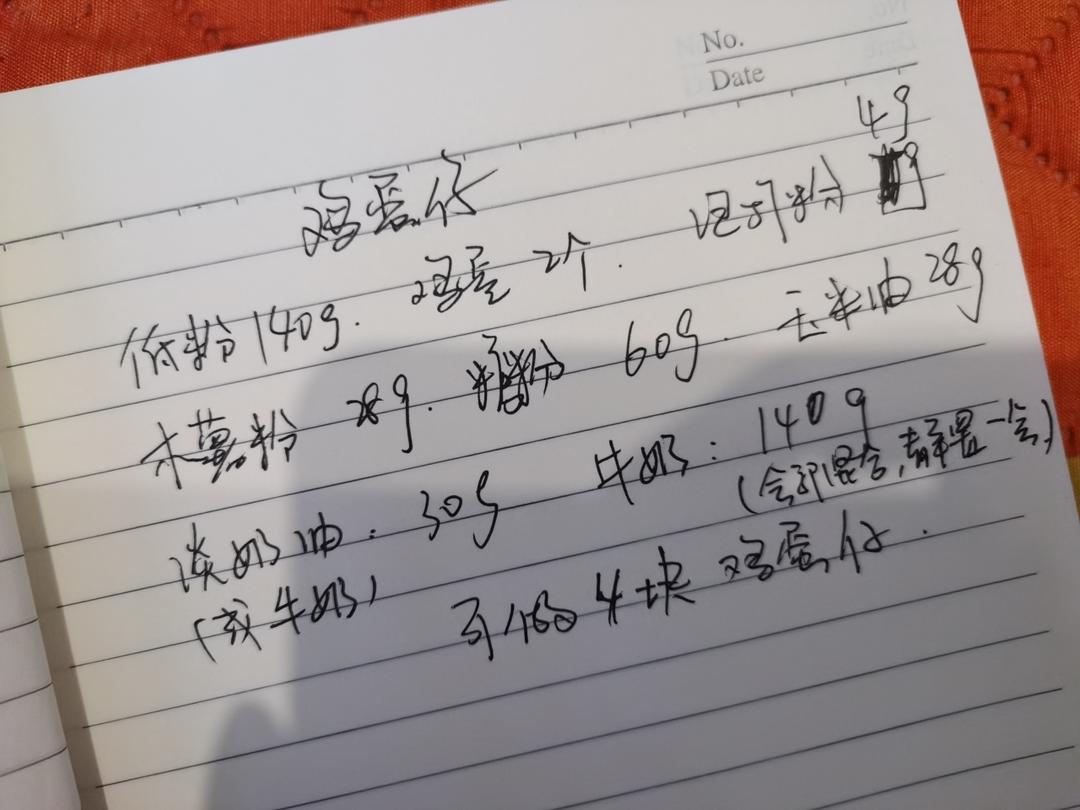 No.
Date
4g
鸡蛋仔
低粉140g. 鸡蛋 2个. 泡打粉
木薯粉 28g. 糖粉 60g. 玉米油 28g
淡奶油: 30g 牛奶: 140g
(或牛奶) (全部混合,静置一会)
可做4块鸡蛋仔.